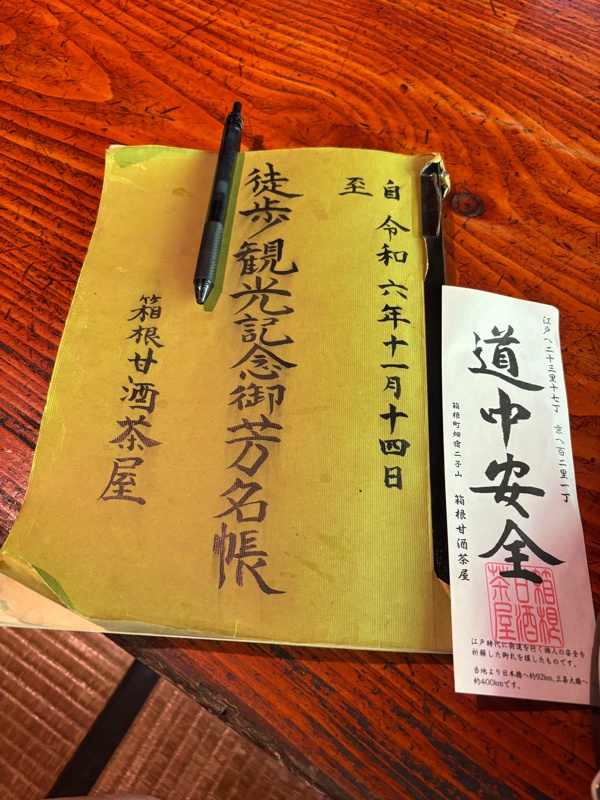 自 令和六年十一月十四日
至
徒歩観光記念御芳名帳
箱根甘酒茶屋
江戸へ二十三里十七丁 京へ百二里一丁
道中安全
箱根町畑宿二子山 箱根甘酒茶屋
箱根
甘酒
茶屋
江戸時代に街道を行く旅人の安全を
祈願した御札を模したものです。
当地より日本橋へ約92km、三条大橋へ
約400kmです。